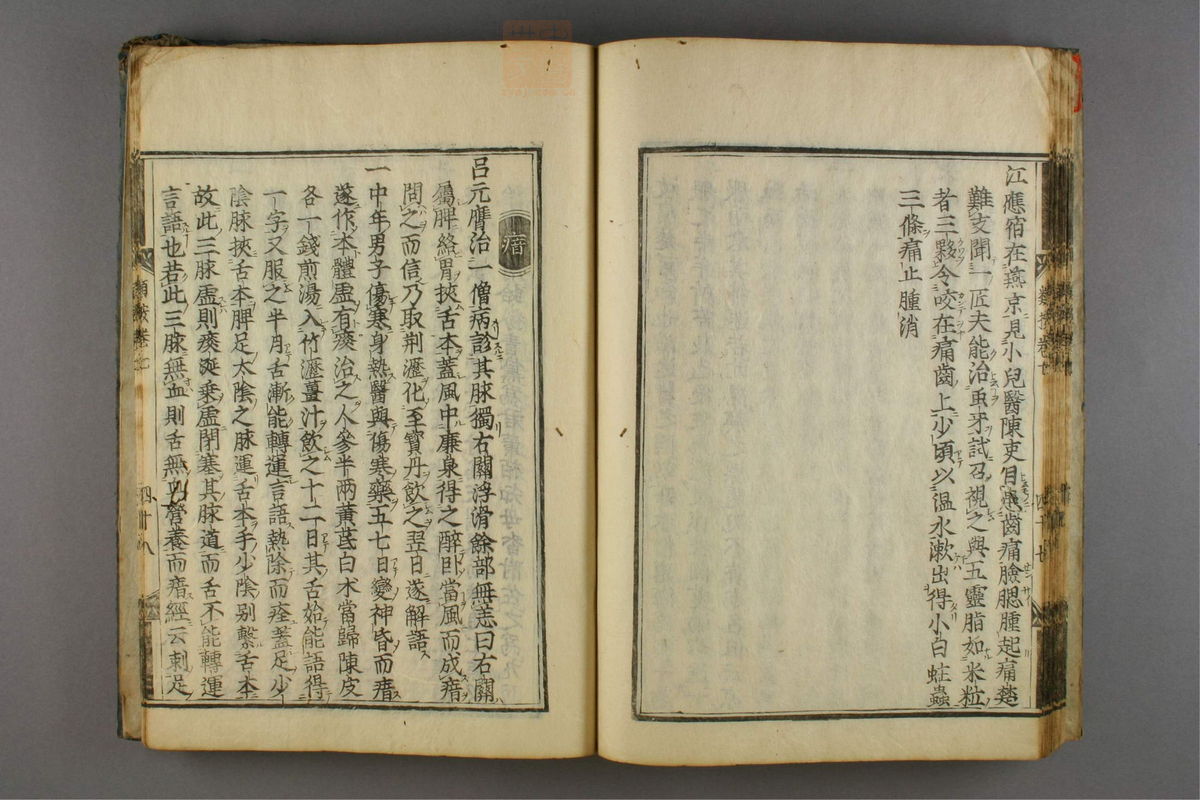 江應宿在燕京見小兒醫陳吏目患齒痛臉腮腫起痛楚
難支聞一匠夫能治虫牙試召視之與五靈脂如米粒
者三夥令咬在痛齒上少頃以温水漱出得小白蛀蟲
三條痛止腫消
瘖
呂元膺治一僧病診其脉獨右關浮滑餘部無恙曰右關
屬脾絡胃挾舌本蓋風中廉泉得之醉卧當風而成瘖
問之而信乃取荆瀝化至寳丹飲之翌日遂解語
一中年男子傷寒身熱醫與傷寒藥五七日變神昏而瘖
遂作本體虛有痰治之人參半兩黄芪白术當歸陳皮
各一錢煎湯入竹瀝薑汁飲之十二日其舌始能語得
一字又服之半月舌漸能轉運言語熱除而痊蓋足少
陰脉挾舌本脾足太陰之脉運舌本手少陰别繫舌本
故此三脉虛則痰涎乗虛閉塞其脉道而舌不能轉運
言語也若此三脉無血則舌無以營養而瘖經云刺足